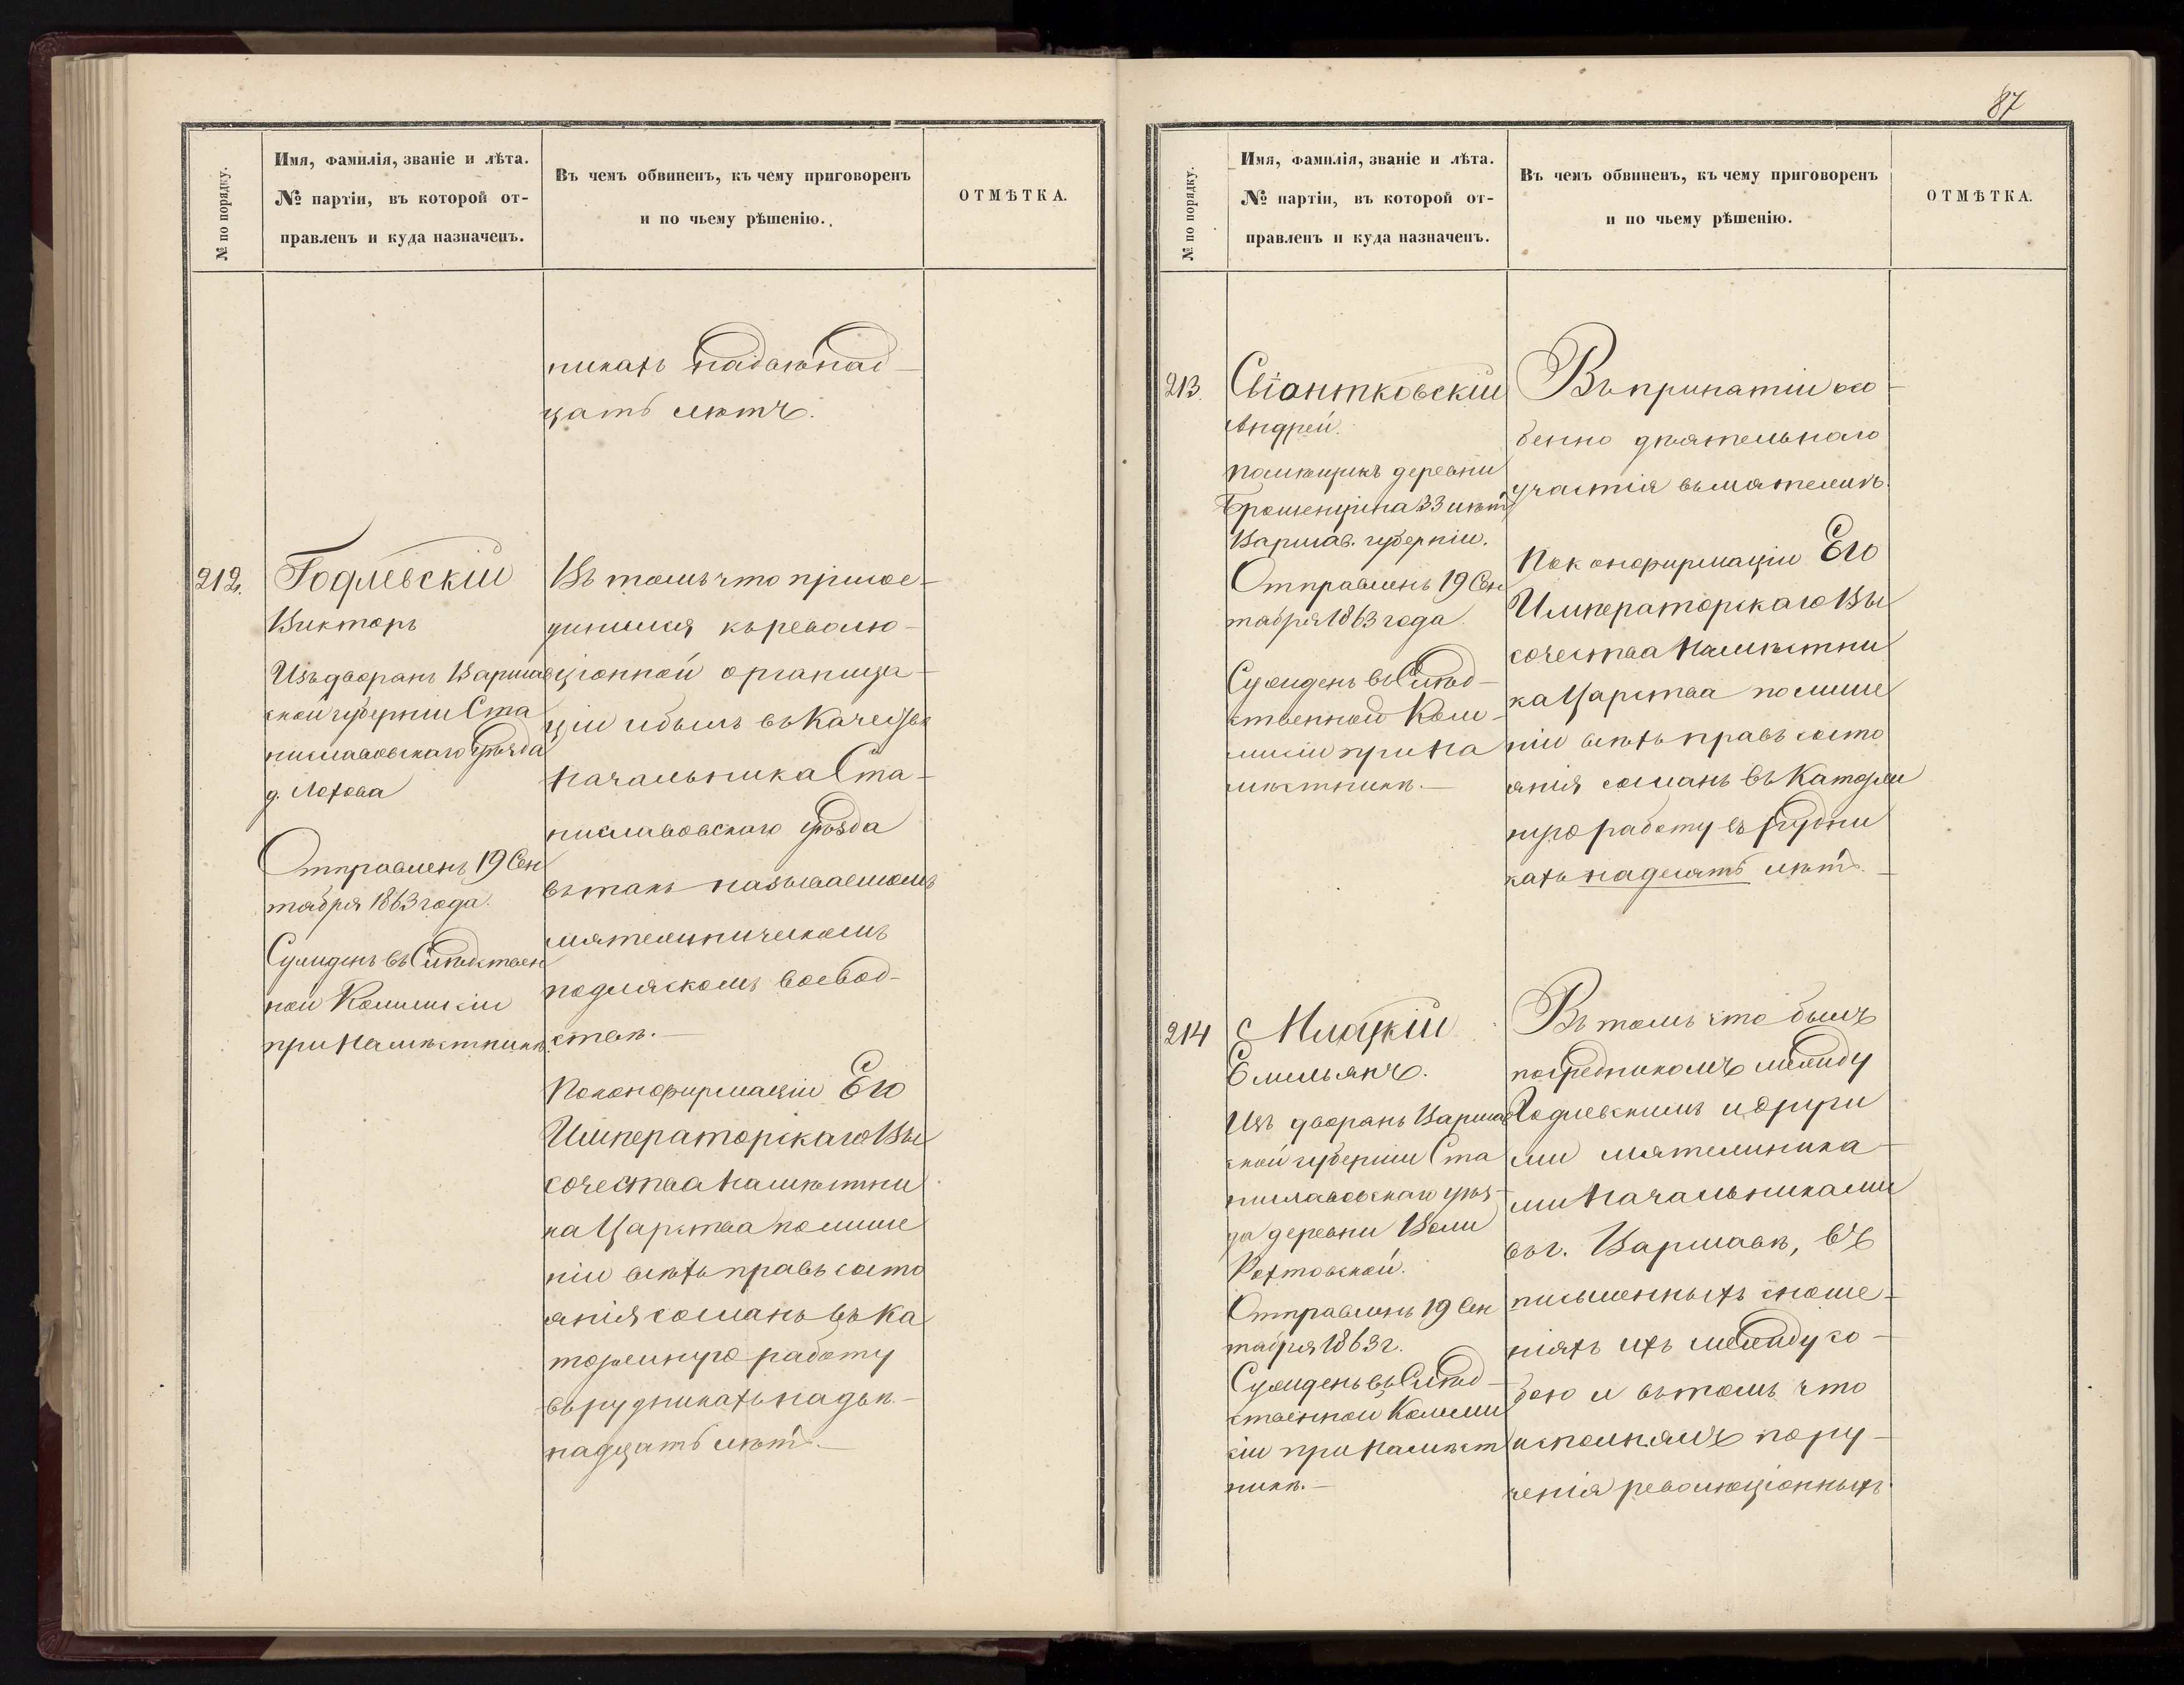 № по порядку.
Имя, фамилія, званіе и лѣта.
№ партіи, въ которой от-
правленъ и куда назначенъ.
Въ чемъ обвиненъ, къ чему приговоренъ
и по чьему рѣшенію.
ОТМѢТКА.
никахъ
цать лѣтъ.
212.
Годлевскій
Викторъ
Изъ дворянъ Варшав
ской губерніи Ста
ниславовскаго уѣзда
д. Лохова
Отправленъ 19 Сен
тября 1863 года.
Сужденъ въ Слѣдствен
ной Коммисіи
при Намѣстникѣ.
Въ томъ что присое-
динился къ револю-
ціонной организа-
ціи и былъ въ качествѣ
Начальника Ста-
ниславовскаго уѣзда
въ такъ называемомъ
мятежническомъ
подляскомъ воевод-
ствѣ.
По конфирмаціи Его
Императорскаго Вы
сочества Намѣстни
ка Царства по лише
ніи всѣхъ правъ состо
янія сосланъ въ Ка
торжную работу
въ рудникахъ на двѣ-
надцать лѣтъ.
87
№ по порядку.
Имя, фамилія, званіе и лѣта.
№ партіи, въ которой от-
правленъ и куда назначенъ.
Въ чемъ обвиненъ, къ чему приговоренъ
и по чьему рѣшенію.
ОТМѢТКА.
213.
Свіонтковскій
Андрей.
помѣщикъ деревни
33 лѣтъ
Варшав. губерніи.
Отправленъ 19 Сен
тября 1863 года.
Сужденъ въ Слѣд-
ственной Ком-
мисіи при На
мѣстникѣ.
Въ принятіи осо-
бенно дѣятельнаго
участія въ мятежѣ.
По конфирмаціи Его
Императорскаго Вы
сочества Намѣстни
ка Царства по лише
ніи всѣхъ правъ состо
янія сосланъ въ Каторж
ную работу въ рудни
кахъ на десять лѣтъ.
214
Илоцкій
Емильянъ.
Изъ дворянъ Варшав
ской губерніи Ста
ниславовскаго уѣз-
да деревни Воли
Рохтовской.
Отправленъ 19 Сен
тября 1863 г.
Сужденъ въ Слѣд-
ственной Комми
сіи при Намѣст
никѣ.
Въ томъ что былъ
посредникомъ между
Годлевскимъ и други
ми мятежника-
ми Начальниками
въ г. Варшавѣ, въ
письменныхъ сноше-
ніяхъ ихъ между со-
бою и въ томъ что
исполнялъ пору-
ченія революціонныхъ